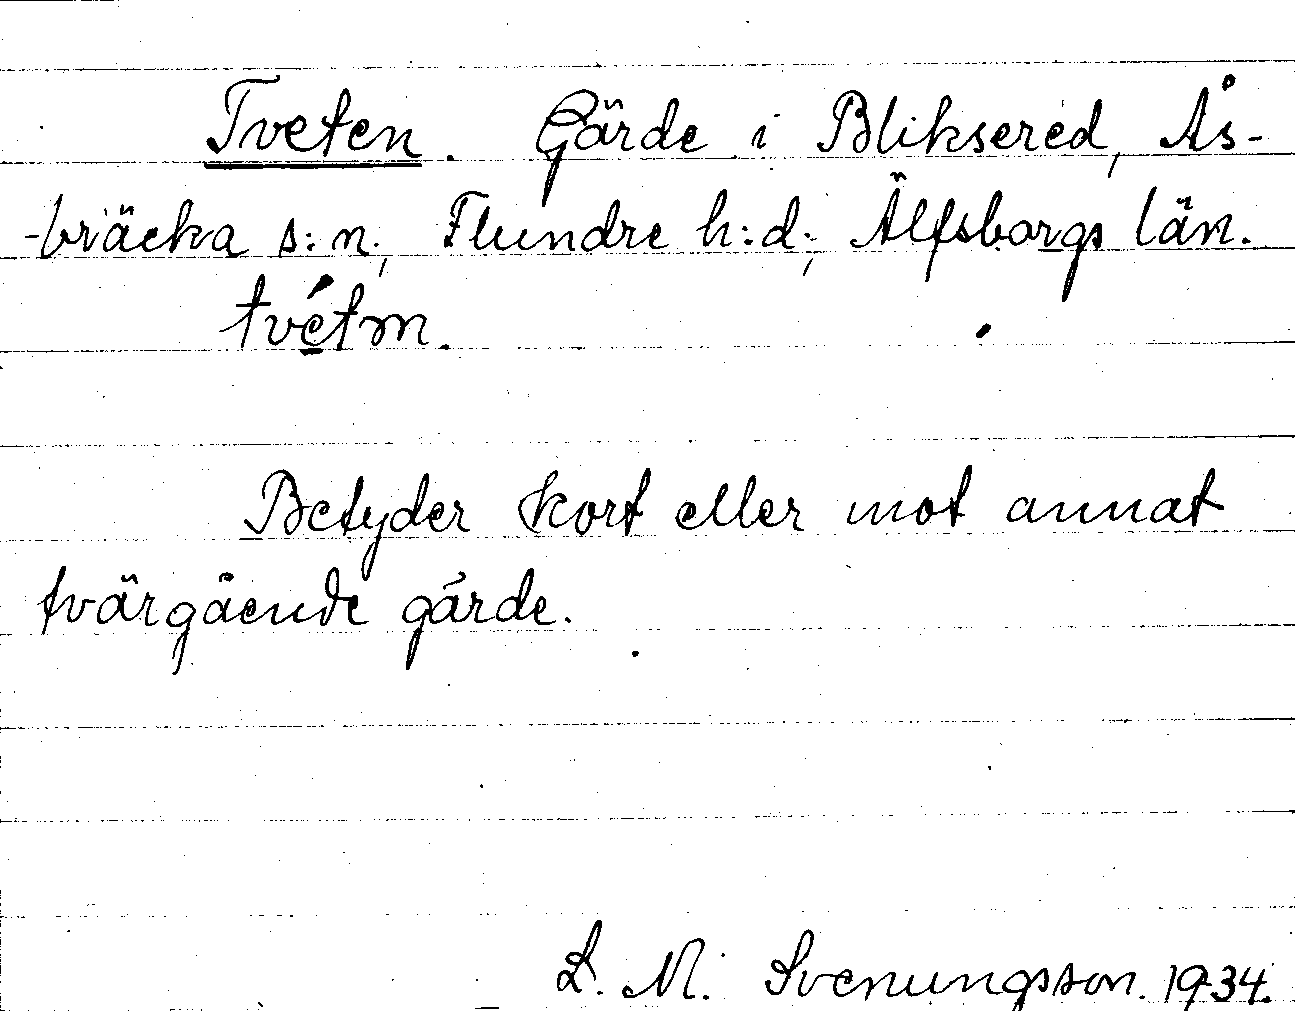 Tveten. Gärde i Bliksered, Ås-
-bräcka s:n, Flundre h:d, Älfsborgs län.
tvétm.
Betyder kort eller mot annat
tvärgående gärde.
L. M. Svenungsson. 1934.